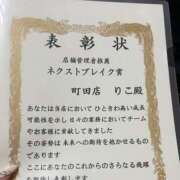 表彰状
店舗管理者推薦
ネクストブレイク賞
町田店 りこ殿
あなたは当店において ひときわ高い成長
可能性を示し日々の業務においてチーム
やお客様に貢献してきました
その姿勢は未来への期待を抱かせるもので
あります
ここにあなたのこれからのさらなる飛躍